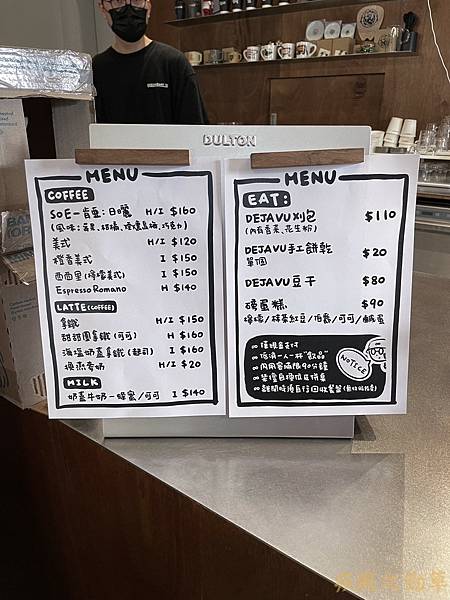 DULTON
MENU
COFFEE
SOE-肯亞:日曬 H/I $160
美式 H/I $120
橙香美式 I $150
西西里(檸檬美式) I $150
Espresso Romano H $140
LATTE(COFFEE)
拿鐵 H/I $150
甜甜圈拿鐵(可可) H $160
海鹽奶蓋拿鐵(起司) I $160
換燕麥奶 H/I $20
MILK
奶蓋牛奶-蜂蜜/可可 I $140
MENU
EAT:
DEJAVU刈包 $110
(內有香菜、花生粉)
DEJAVU手工餅乾 $20
單個
DEJAVU豆干 $80
磅蛋糕 $90
檸檬/抹茶紅豆/伯爵/可可/鹹蛋
∞ 僅限現金支付
∞ 低消一人一杯"飲品"
∞ 內用客滿限90分鐘
NOTICE